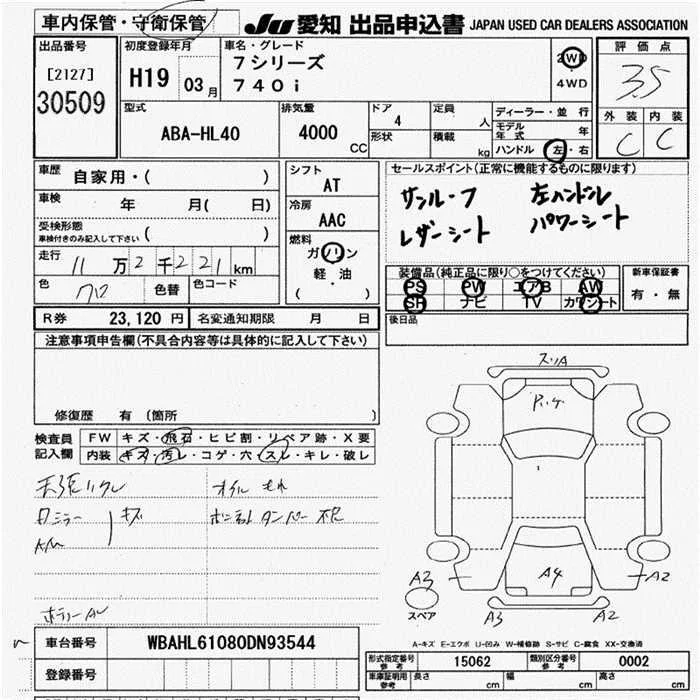 車内保管・守衛保管 JU 愛知 出品申込書 JAPAN USED CAR DEALERS ASSOCIATION
出品番号 初度登録年月 車名・グレード 2WD 評価点
[2127] H19 03月 7シリーズ 4WD 3.5
30509 740i 外装 内装
型式 排気量 ドア 定員 ディーラー・並行 C C
ABA-HL40 4000 CC 4 人 モデル年式 年
形状 積載 kg ハンドル 左・右
車歴 自家用・( ) シフト AT セールスポイント(正常に機能するものに限ります)
車検 年 月( 日) 冷房 AAC サンルーフ 左ハンドル
受検形態 ( ) レザーシート パワーシート
車検付きのみ記入して下さい 燃料
走行 11万2千221km ガソリン
色 クロ 色替 色コード 軽・油
( )
装備品(純正品に限り○をつけてください) 新車保証書
PS PW エアB AW 有・無
SR ナビ TV カワシート
R券 23,120円 名変通知期限 月 日 後日品
注意事項申告欄(不具合内容等は具体的に記入して下さい)
修復歴 有 (箇所 )
検査員記入欄 FW キズ・飛石・ヒビ割・リペア跡・X要
内装 キズ・汚レ・コゲ・穴・スレ・キレ・破レ
オイルもれ
ロミラー キズ ボンネットダンパー不良
スリA
A4
A3 A2
スペア A3 A2
A-キズ E-エクボ U-凹み W-補修跡 S-サビ C-腐食 XX-交換済
車台番号 WBAHL61080DN93544
登録番号
形式指定番号 参考 15062 類別区分番号 参考 0002
車庫証明用 参考 長さ cm 幅 cm 高さ cm